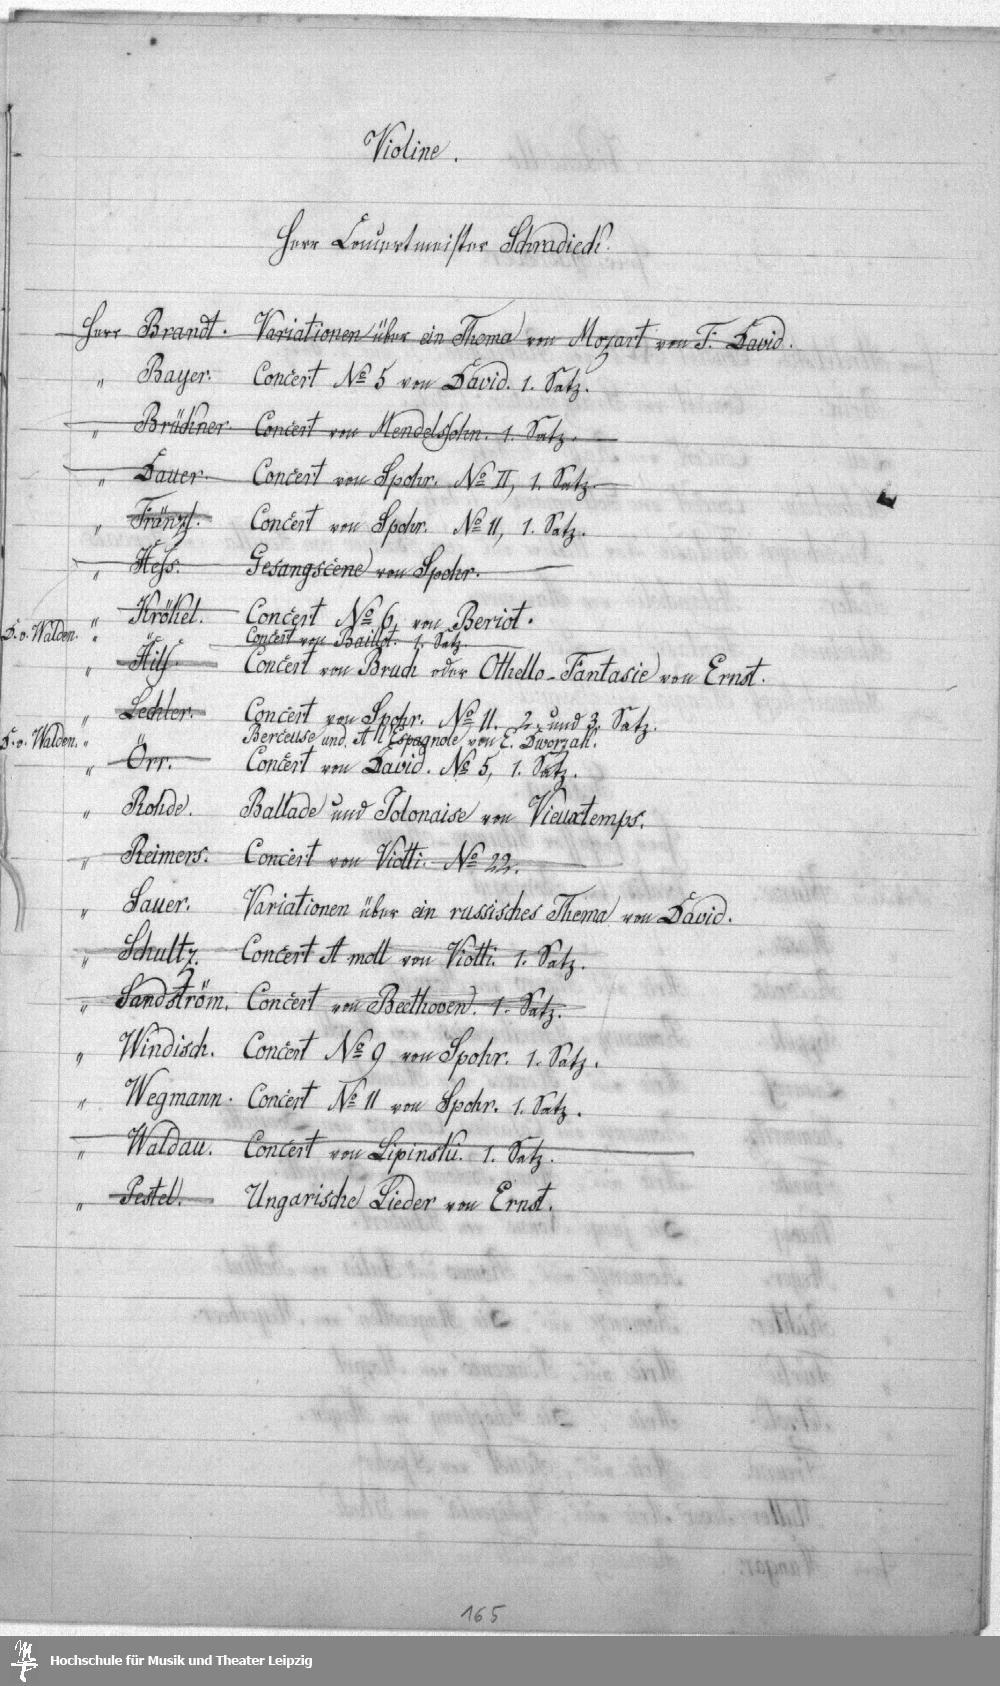 Violine.
Herr Concertmeister Schradieck.
Herr Brandt. Variationen über ein Thema von Mozart von F. David.
" Bayer. Concert No 5 von David. 1. Satz.
" Brückner. Concert von Mendelssohn. 1. Satz.
" Dauer. Concert von Spohr. No II, 1. Satz.
" Fränzl. Concert von Spohr. No 11, 1. Satz.
" Hess. Gesangscene von Spohr.
" Krökel. Concert No 6 von Beriot.
D. o. Walden. " " Concert von Baillot. 1. Satz.
" Hilf. Concert von Bruch oder Othello-Fantasie von Ernst.
" Lechler. Concert von Spohr. No 11. 2. und 3. Satz.
D. o. Walden. " Berceuse und A l'Espagnole von E. Dworzak.
" Örr. Concert von David. No 5, 1. Satz.
" Rohde. Ballade und Polonaise von Vieuxtemps.
" Reimers. Concert von Viotti. No 22.
" Sauer. Variationen über ein russisches Thema von David.
" Schultz. Concert A moll von Viotti. 1. Satz.
" Sandström. Concert von Beethoven. 1. Satz.
" Windisch. Concert No 9 von Spohr. 1. Satz.
" Wegmann. Concert No 11 von Spohr. 1. Satz.
" Waldau. Concert von Lipinski. 1. Satz.
" Pestel. Ungarische Lieder von Ernst.
165
Hochschule für Musik und Theater Leipzig